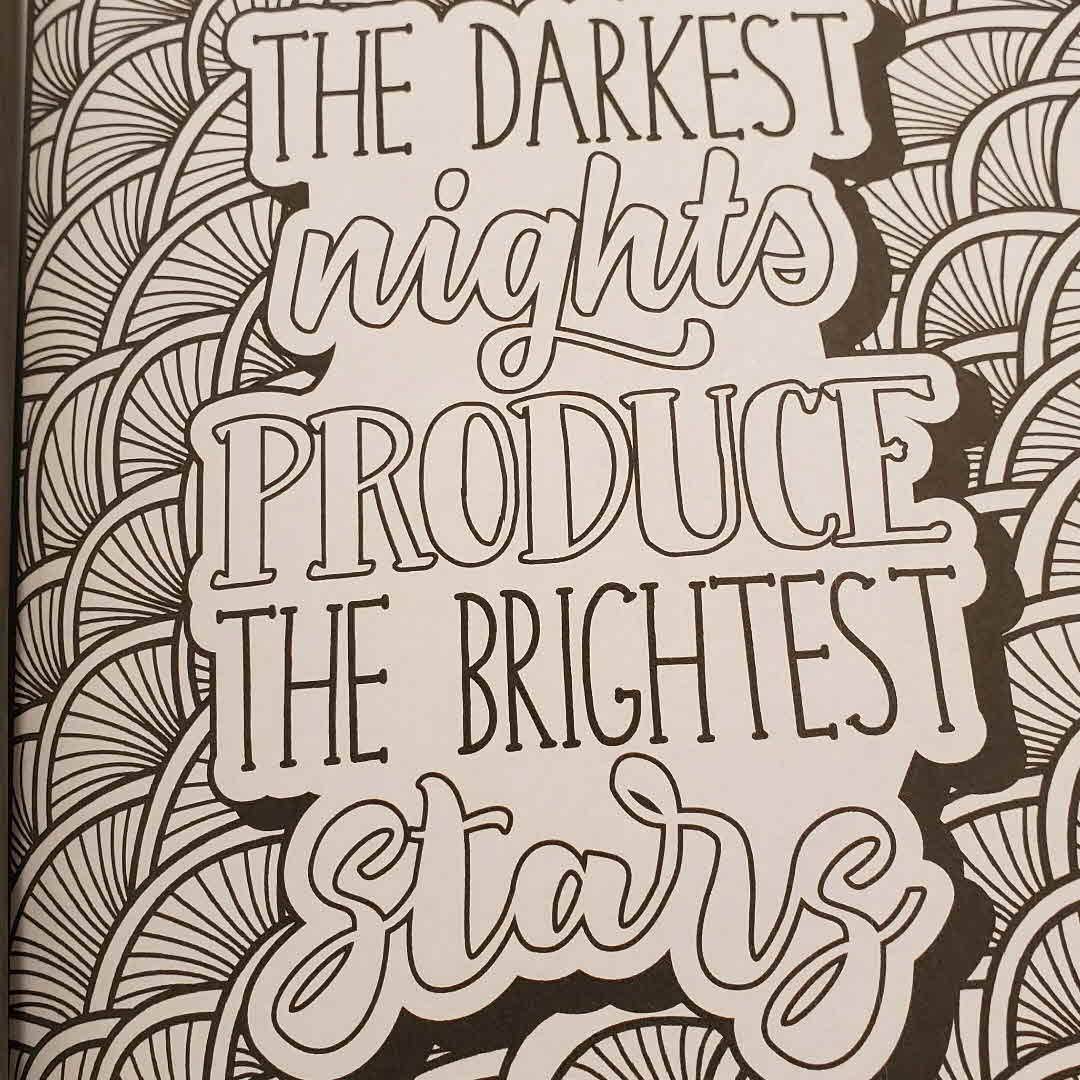 THE DARKEST
nights
PRODUCE
THE BRIGHTEST
stars